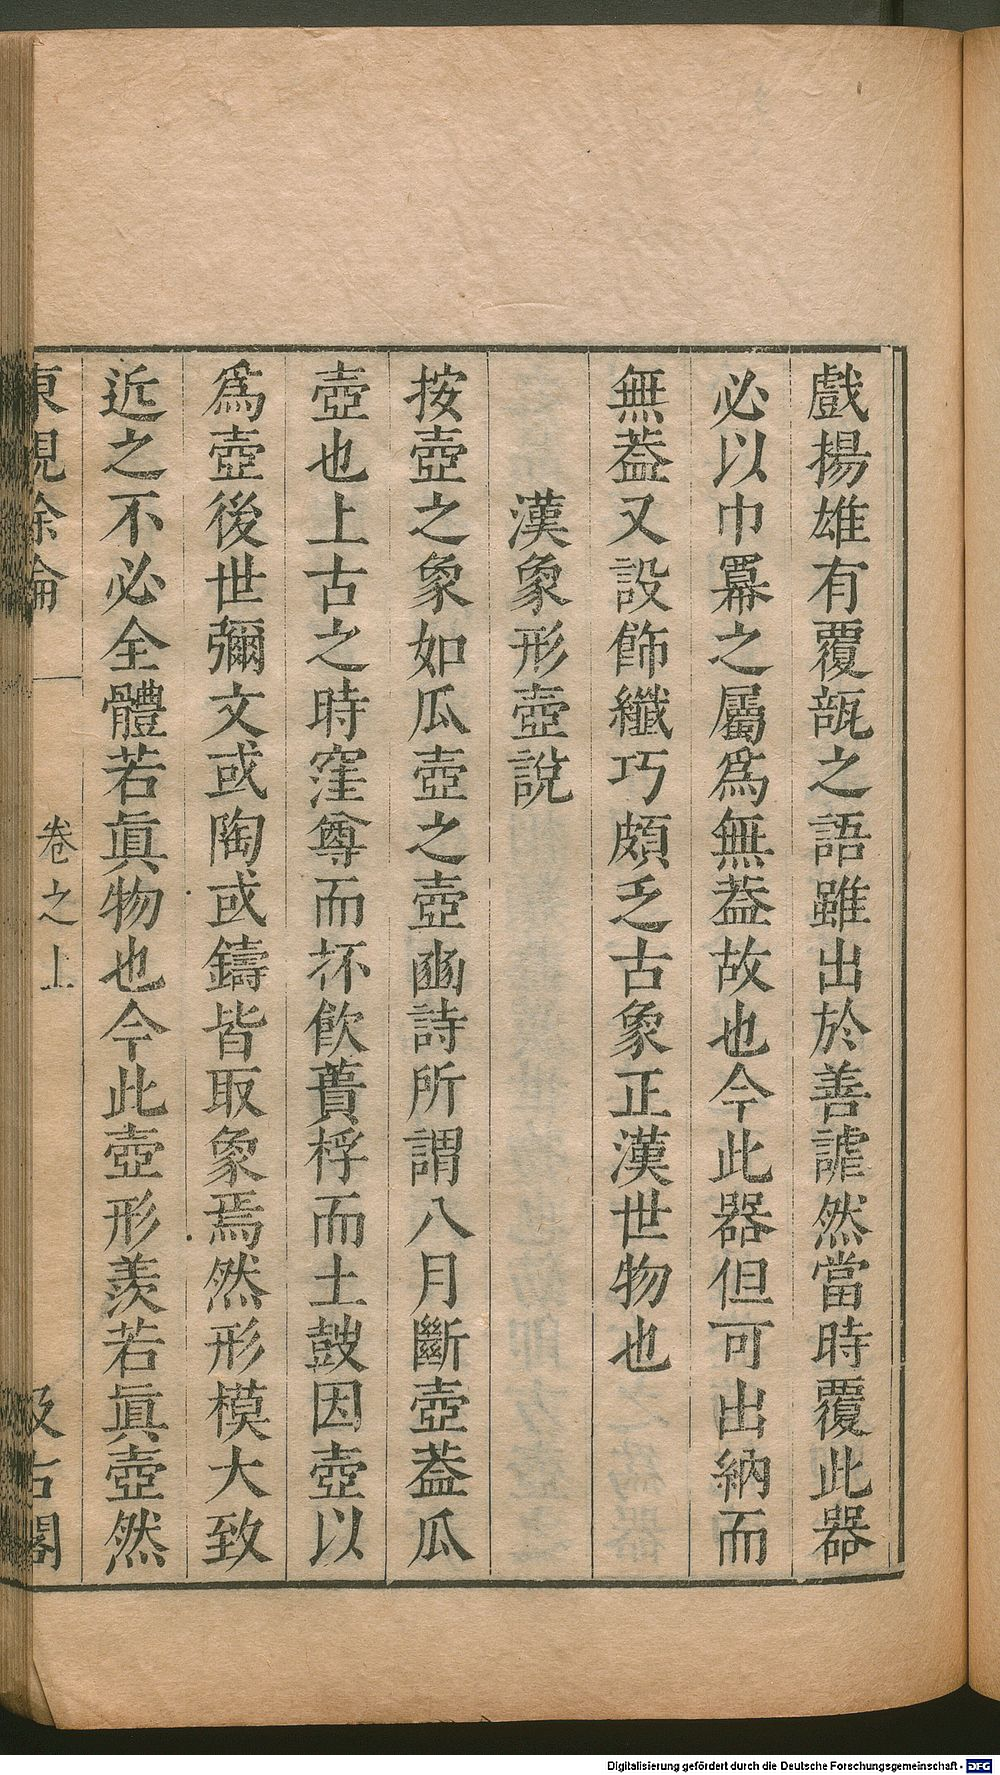 戲揚雄有覆瓿之語雖出於善謔然當時覆此器
必以巾羃之屬爲無葢故也今此器但可出納而
無葢又設飾纖巧頗乏古象正漢世物也
漢象形壺說
按壺之象如瓜壺之壺豳詩所謂八月斷壺葢瓜
壺也上古之時窪尊而抔飮蕢桴而土鼓因壺以
爲壺後世彌文或陶或鑄皆取象焉然形模大致
近之不必全體若眞物也今此壺形羨若眞壺然
東觀餘論
卷之上
汲古閣
Digitalisierung gefördert durch die Deutsche Forschungsgemeinschaft - DFG